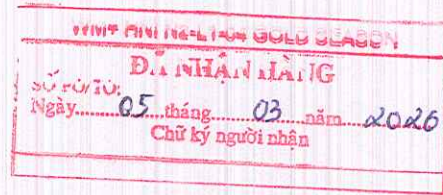 WM+ HNI N2-L1-04 GOLD SEASON
ĐÃ NHẬN HÀNG
SỐ PO/TO:
Ngày.....05.....tháng.....03.....năm.....2026
Chữ ký người nhận